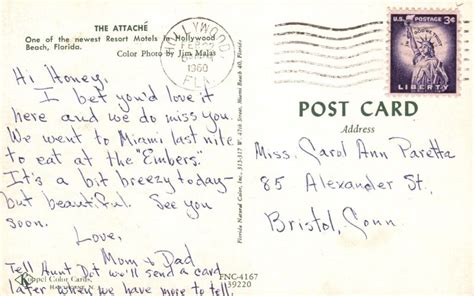 THE ATTACHÉ
One of the newest Resort Motels in Hollywood
Beach, Florida.
Color Photo by Jim Malas
Hi Honey,
I bet you'd love it
here and we do miss you.
We went to Miami last nite
to eat at the "Embers".
It's a bit breezy today-
but beautiful. See you
soon.
Love,
Mom & Dad
Tell Aunt Dot we'll send a card
later when we have more to tell.
Koppel Color Cards,
FNC-4167
39220
Florida Natural Color, Inc. 315-317 W. 47th Street, Miami Beach 40, Florida
HOLLYWOOD
FEB
1960
FLA
U.S. POSTAGE 3¢
IN GOD WE TRUST
LIBERTY
POST CARD
Address
Miss. Carol Ann Paretta
85 Alexander St.,
Bristol, Conn.